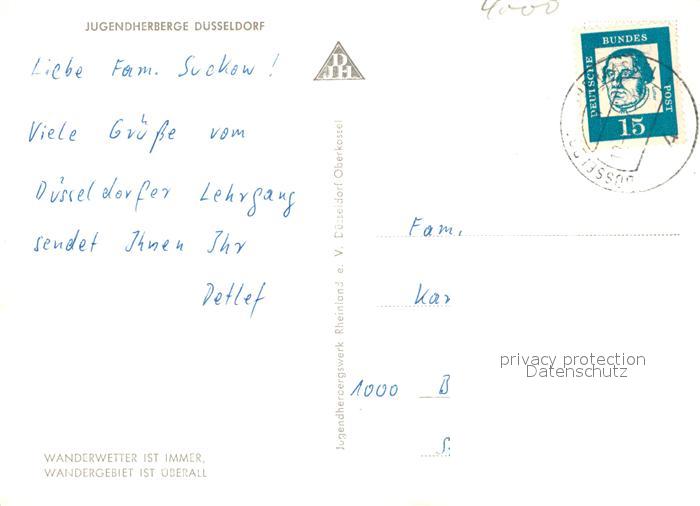 JUGENDHERBERGE DÜSSELDORF
Liebe Fam. Suckow!
Viele Grüße vom
Düsseldorfer Lehrgang
sendet Ihnen Ihr
Detlef
WANDERWETTER IST IMMER,
WANDERGEBIET IST ÜBERALL
Jugendherbergswerk Rheinland e. V. Düsseldorf Oberkassel
DJH
4000
DEUTSCHE
BUNDES
POST
15
DÜSSELDORF
Fam.
Kar
1000 B
privacy protection
Datenschutz